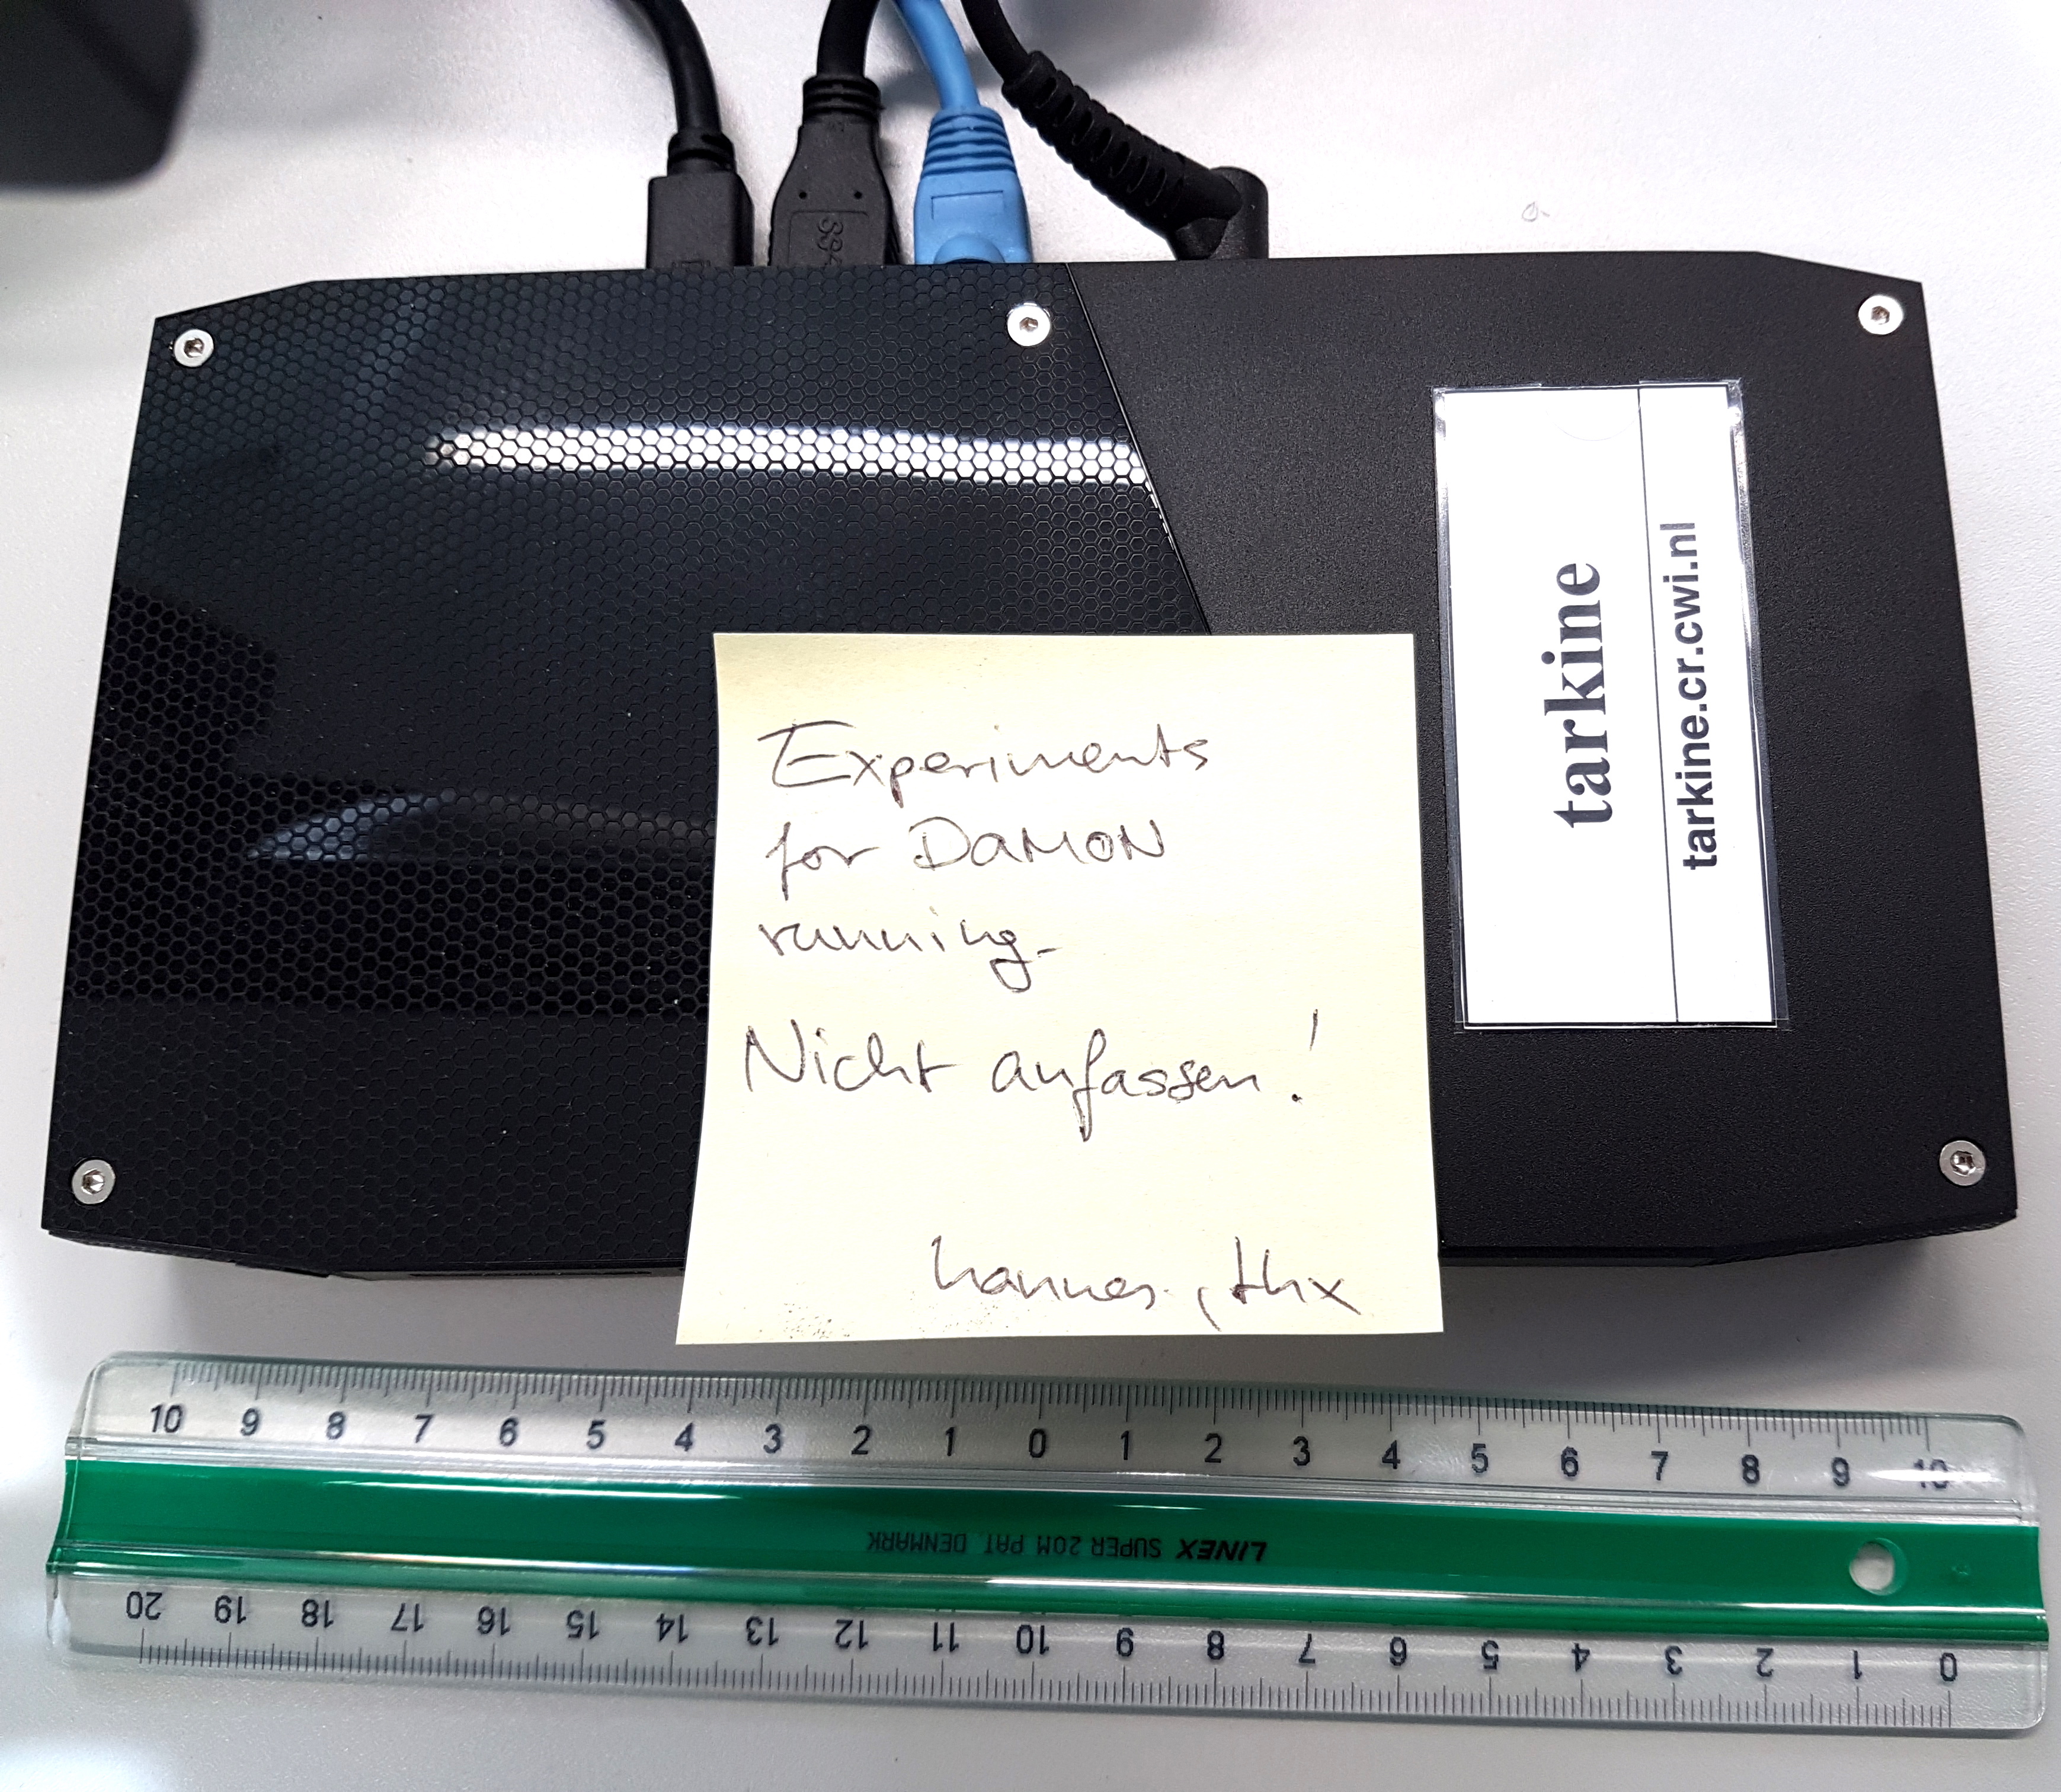 tarkine
tarkine.cr.cwi.nl
Experiments
for DaMoN
running.
Nicht anfassen!
hannes, thx
10 9 8 7 6 5 4 3 2 1 0 1 2 3 4 5 6 7 8 9 10
LINEX SUPER 20M PAT DENMARK
20 19 18 17 16 15 14 13 12 11 10 9 8 7 6 5 4 3 2 1 0